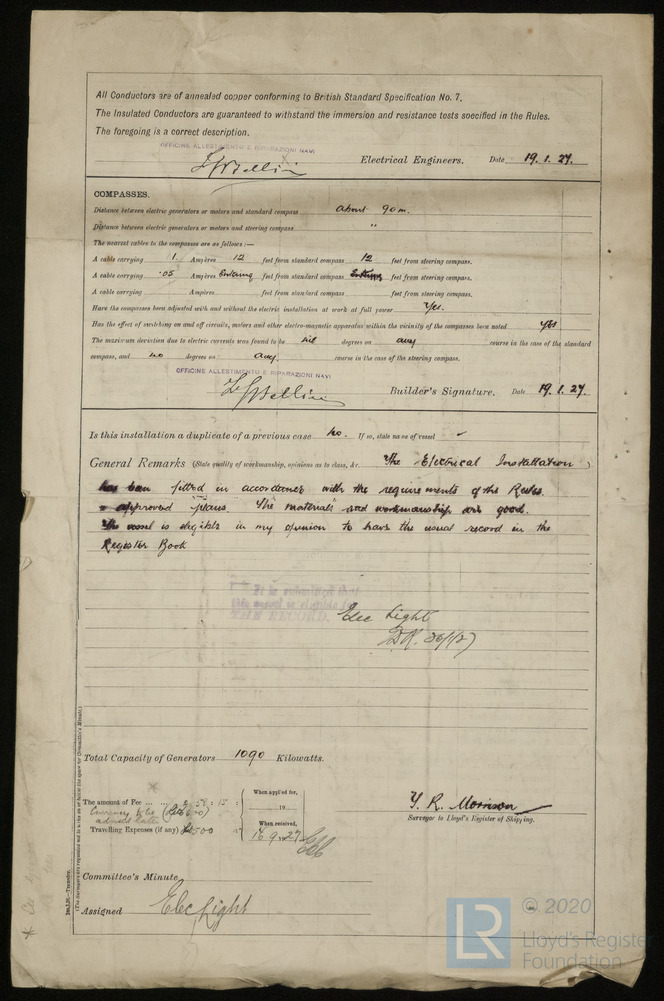 All Conductors are of annealed copper conforming to British Standard Specification No. 7.
The Insulated Conductors are guaranteed to withstand the immersion and resistance tests specified in the Rules.
The foregoing is a correct description.
OFFICINE ALLESTIMENTO E RIPARAZIONI NAVI
Electrical Engineers. Date 19.1.27.
COMPASSES.
Distance between electric generators or motors and standard compass about 90 m.
Distance between electric generators or motors and steering compass "
The nearest cables to the compasses are as follows:—
A cable carrying 1. Ampères 12 feet from standard compass 12 feet from steering compass.
A cable carrying .05 Ampères Entering feet from standard compass Entering feet from steering compass.
A cable carrying Ampères feet from standard compass feet from steering compass.
Have the compasses been adjusted with and without the electric installation at work at full power Yes.
Has the effect of switching on and off circuits, motors and other electro-magnetic apparatus within the vicinity of the compasses been noted yes
The maximum deviation due to electric currents was found to be nil degrees on any course in the case of the standard
compass, and no degrees on any. course in the case of the steering compass.
OFFICINE ALLESTIMENTO E RIPARAZIONI NAVI
Builder's Signature. Date 19.1.27.
Is this installation a duplicate of a previous case No. If so, state name of vessel
General Remarks (State quality of workmanship, opinions as to class, &c. The Electrical Installation
has been fitted in accordance with the requirements of the Rules.
approved plans. The materials and workmanship are good.
The vessel is eligible in my opinion to have the usual record in the
Register Book
It is submitted that
this vessel is eligible for
THE RECORD. Elec Light
Total Capacity of Generators 1090 Kilowatts.
The amount of Fee
When applied for,
19
Travelling Expenses (if any)
When received,
16.9.27
Y. R. Morrison
Surveyor to Lloyd's Register of Shipping.
Committee's Minute
Assigned Elec Light
LR © 2020
Lloyd's Register
Foundation